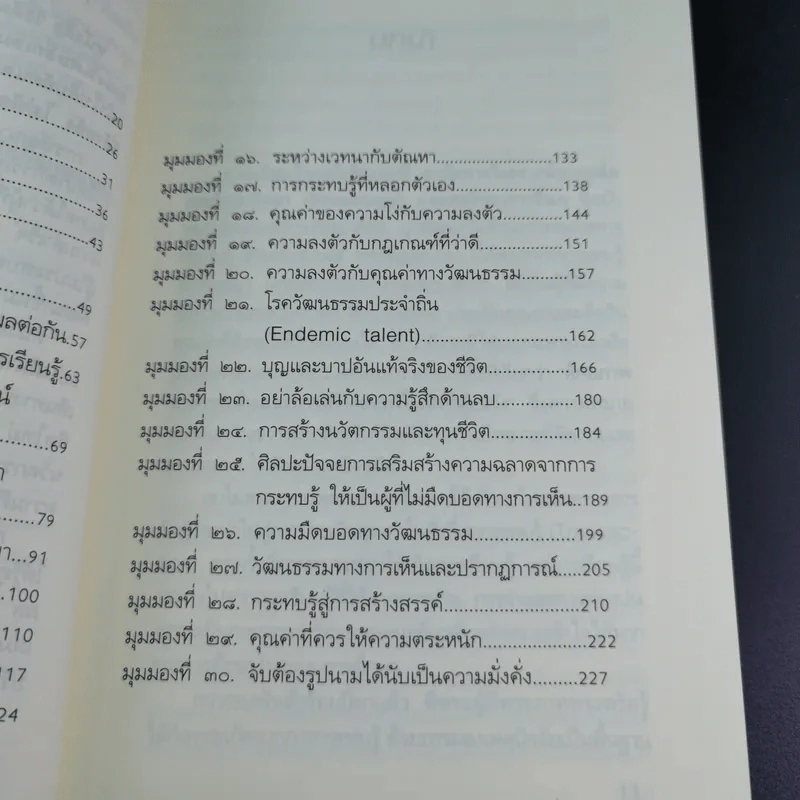 20
26
31
36
43
49
ผลต่อกัน.57
รเรียนรู้.63
69
79
91
100
110
117
24
มุมมองที่ ๑๖. ระหว่างเวทนากับตัณหา...........................133
มุมมองที่ ๑๗. การกระทบรู้ที่หลอกตัวเอง.........................138
มุมมองที่ ๑๘. คุณค่าของความโง่กับความลงตัว..............144
มุมมองที่ ๑๙. ความลงตัวกับกฎเกณฑ์ที่ว่าดี...................151
มุมมองที่ ๒๐. ความลงตัวกับคุณค่าทางวัฒนธรรม...........157
มุมมองที่ ๒๑. โรควัฒนธรรมประจำถิ่น
(Endemic talent).................................162
มุมมองที่ ๒๒. บุญและบาปอันแท้จริงของชีวิต...................166
มุมมองที่ ๒๓. อย่าล้อเล่นกับความรู้สึกด้านลบ..................180
มุมมองที่ ๒๔. การสร้างนวัตกรรมและทุนชีวิต...................184
มุมมองที่ ๒๕. ศิลปะปัจจยการเสริมสร้างความฉลาดจากการ
กระทบรู้ ให้เป็นผู้ที่ไม่มืดบอดทางการเห็น..189
มุมมองที่ ๒๖. ความมืดบอดทางวัฒนธรรม........................199
มุมมองที่ ๒๗. วัฒนธรรมทางการเห็นและปรากฏการณ์.....205
มุมมองที่ ๒๘. กระทบรู้สู่การสร้างสรรค์...............................210
มุมมองที่ ๒๙. คุณค่าที่ควรให้ความตระหนัก........................222
มุมมองที่ ๓๐. จับต้องรูปนามได้นับเป็นความมั่งคั่ง.........227